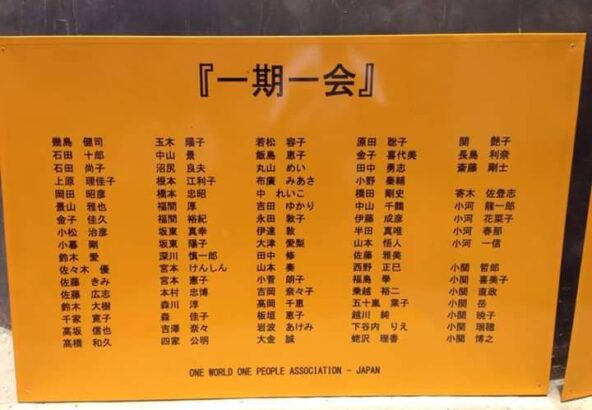 『一期一会』
幾島 健司
石田 十郎
石田 尚子
上原 理佳子
岡田 昭彦
景山 雅也
金子 佳久
小松 治彦
小暮 剛
鈴木 愛
佐々木 優
佐藤 きみ
佐藤 広志
鈴木 大樹
千家 寛子
高坂 信也
高橋 和久
玉木 陽子
中山 景
沼尻 良夫
根本 江利子
橋本 忠昭
福間 厚
福間 裕紀
坂東 真幸
坂東 陽子
深川 慎一郎
宮本 けんしん
宮本 憲子
本村 忠博
森川 淳
森 佳子
吉澤 奈々
四家 公明
若松 容子
飯島 恵子
丸山 めい
布廣 みあさ
中 れいこ
吉田 ゆかり
永田 敦子
伊達 敦
大津 愛梨
田中 修
山本 奏
小菅 朗子
吉岡 奈々子
高岡 千恵
板垣 恵子
岩波 あけみ
大金 誠
原田 聡子
金子 喜代美
田中 勇志
小野 泰輔
橋田 剛史
中山 千鶴
伊藤 成彦
半田 真唯
山本 悟人
佐藤 雅美
西野 正巳
福島 學
乗越 裕二
五十嵐 葉子
越川 純
下谷内 りえ
蛯沢 理香
関 艶子
長島 利奈
斎藤 剛士
寄木 佐登志
小河 龍一郎
小河 花菜子
小河 春那
小河 一信
小関 哲郎
小関 喜美子
小関 直政
小関 岳
小関 暁子
小関 瑞穂
小関 博之
ONE WORLD ONE PEOPLE ASSOCIATION - JAPAN